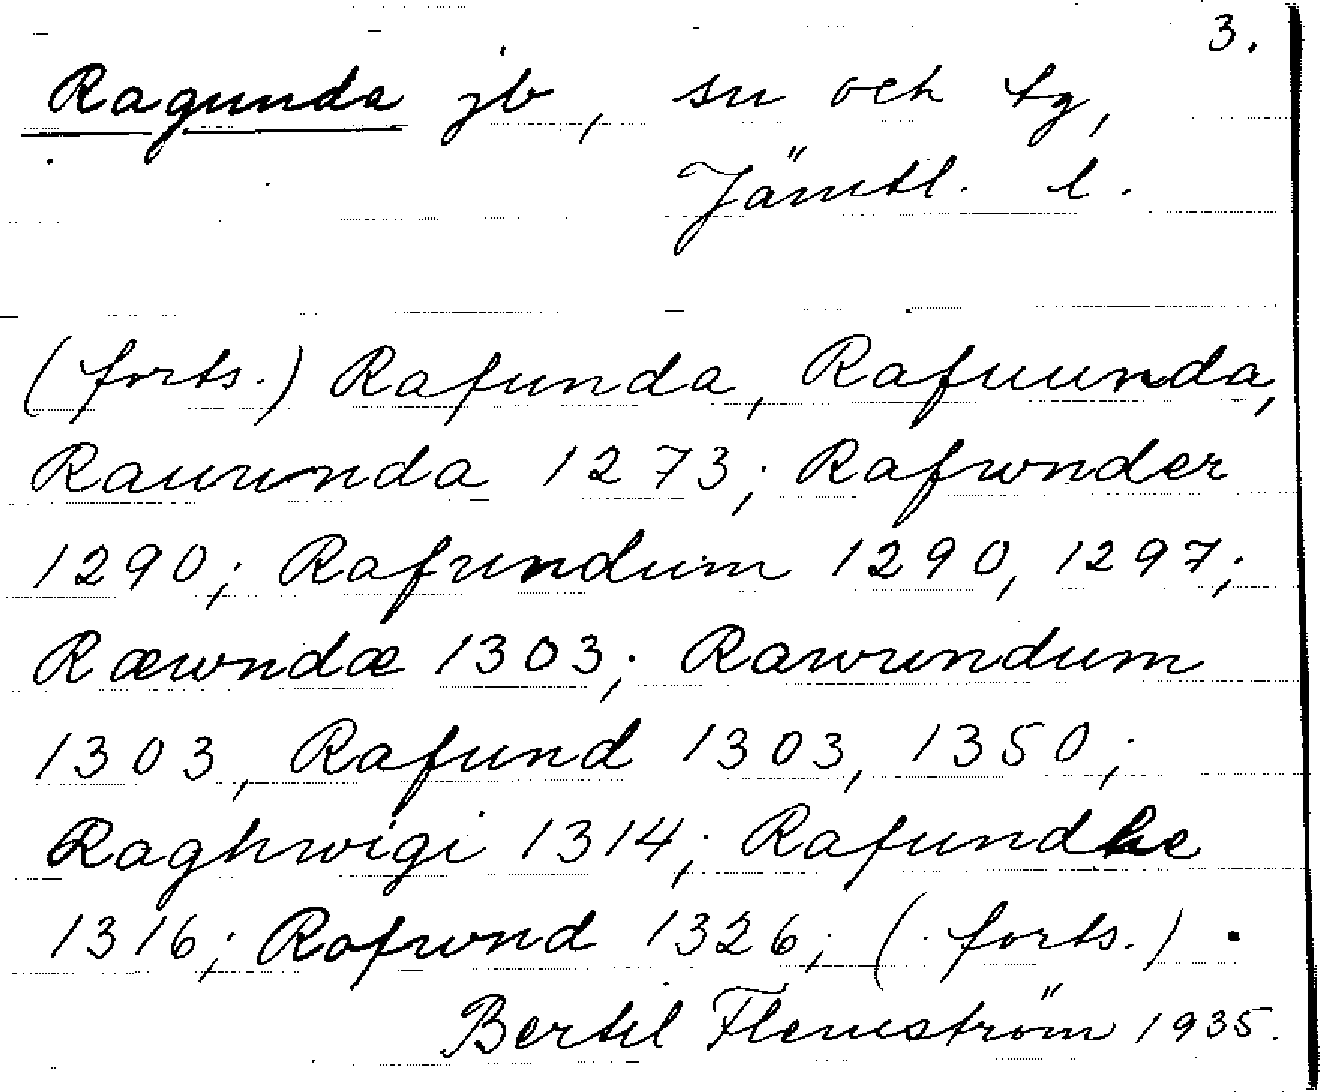 3.
Ragunda jb, sn och tg,
Jämtl. l.
(forts.) Rafunda, Rafuunda,
Rauunda 1273; Rafwnder
1290; Rafundum 1290, 1297;
Ræwndæ 1303; Rawundum
1303, Rafund 1303, 1350;
Raghwigi 1314; Rafundhe
1316; Rafwnd 1326; (forts.)
Bertil Flemström 1935.